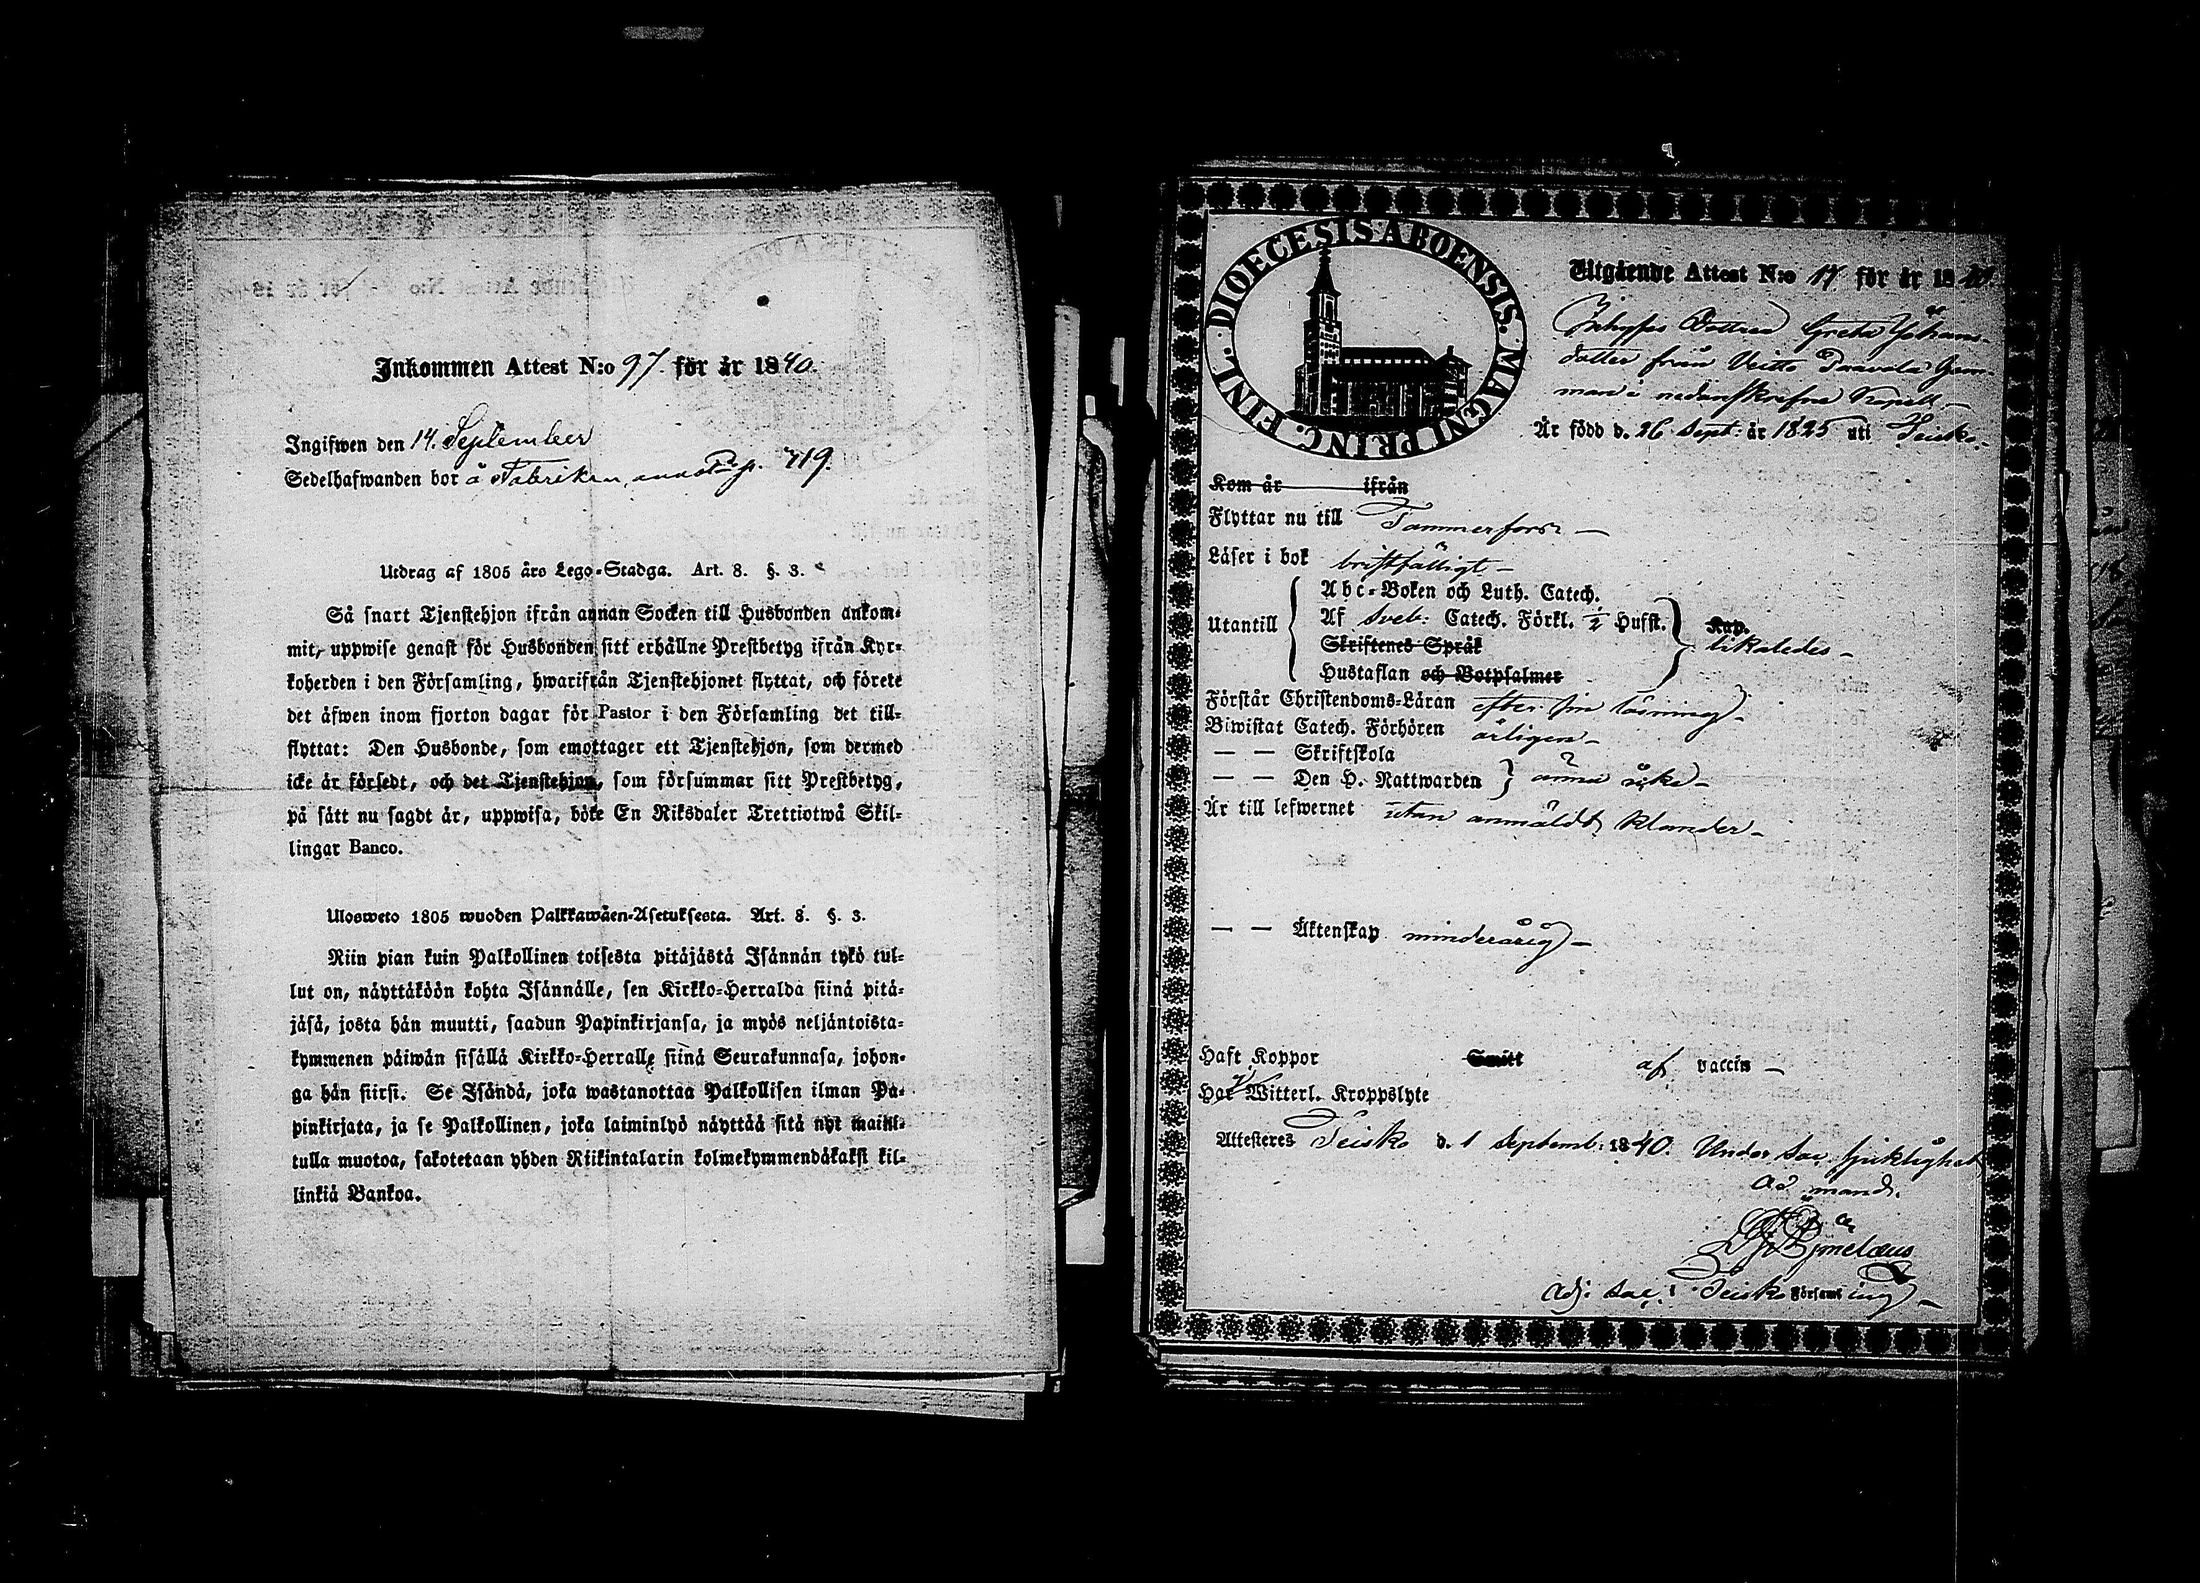 Inkommen Attest N:o 97. för år 1840.
Ingifwen den 14. September
Sedelhafwanden bor å Fabriken, p. 719.
Utdrag af 1805 års Lego-Stadga. Art. 8. §. 3.
Så snart Tjenstehjon ifrån annan Socken till Husbonden ankom-
mit, uppwise genast för Husbonden sitt erhållne Prestbetyg ifrån Kyr-
koherden i den Församling, hwarifrån Tjenstehjonet flyttat, och förete
det äfwen inom fjorton dagar för Pastor i den Församling det till-
flyttat: Den Husbonde, som emottager ett Tjenstehjon, som dermed
icke är försedt, och det Tjenstehjon, som försummar sitt Prestbetyg,
på sätt nu sagdt är, uppwisa, böte En Riksdaler Trettiotwå Skil-
lingar Banco.
Ulosweto 1805 wuoden Palkkawäen-Asetuksesta. Art. 8. §. 3.
Niin pian kuin Palkollinen toisesta pitäjästä Isännän tykö tul-
lut on, näyttäköön kohta Isännälle, sen Kirkko-Herralda siinä pitä-
jäsä, josta hän muutti, saadun Papinkirjansa, ja myös neljäntoista-
kymmenen päiwän sisällä Kirkko-Herralle siinä Seurakunnasa, johon-
ga hän siirsi. Se Isändä, joka wastanottaa Palkollisen ilman Pa-
pinkirjata, ja se Palkollinen, joka laiminlyö näyttää sitä nyt mainit-
tulla muotoa, sakotetaan yhden Riikintalarin kolmekymmendäkaksi kil-
linkiä Bankoa.
DIOECESIS ABOENSIS. MAGNI PRINC. FINL.
Utgående Attest N:o 14 för år 1840.
Inhyses Dottren Greta Johans-
dotter från Veitto Paavola Hem-
man i nedanskrefne Kapell.—
Är född d. 26 Sept: år 1825 uti Teisko.
Kom år ifrån
Flyttar nu till Tammerfors —
Läser i bok bristfälligt —
Utantill
Abc-Boken och Luth. Catech.
Af Sveb: Catech. Förkl. ½ Husst.
Skriftenes Språk
Hustaflan och Botpsalmer
Kap.
likaledes —
Förstår Christendoms-Läran efter sin läsning —
Biwistat Catech. Förhören årligen —
— — Skriftskola
— — Den H. Nattwarden ännu icke —
Är till lefwernet utan anmäldt klander —
— — Äktenskap minderårig —
Haft Koppor Smitt af vaccin —
Har Witterl. Kroppslyte
Attesteres Teisko d. 1 Septemb: 1840. Under Sac.
Ad mand.
Adj. Sac. i Teisko Församling —